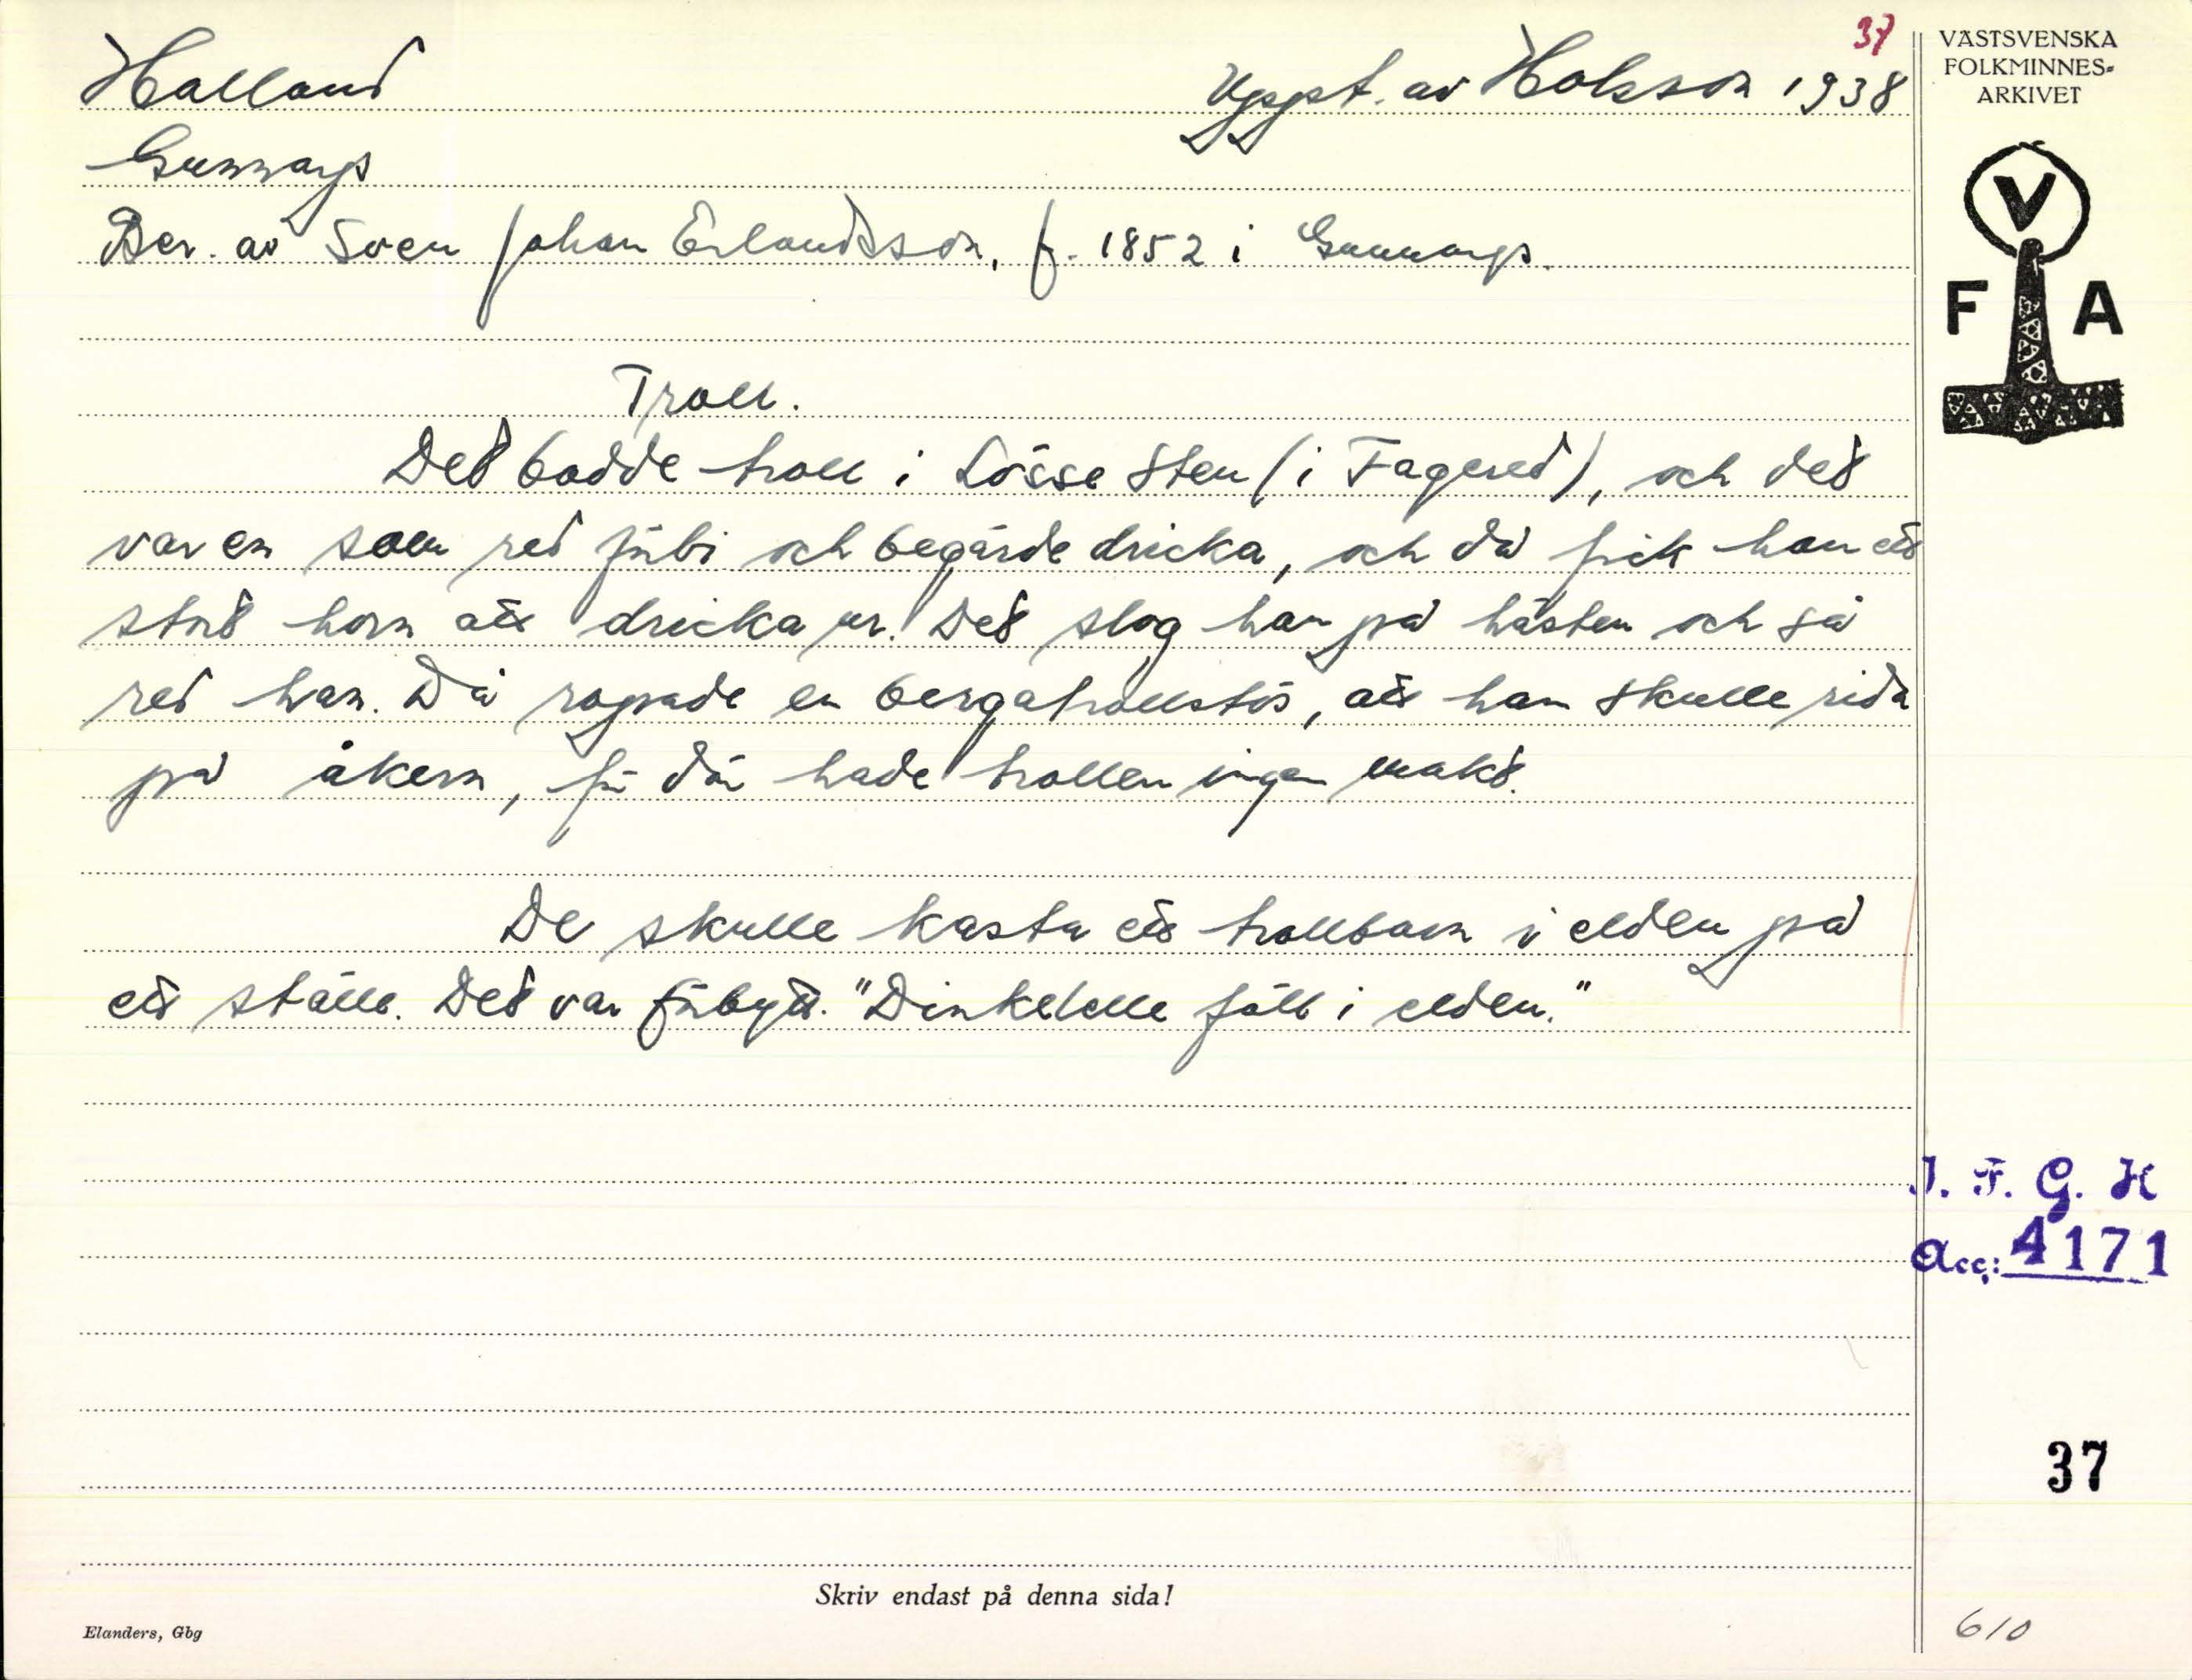 37
Halland
Uppt. av Holsson 1938
Gunnarps
Ber. av Sven Johan Erlandsson, f. 1852 i Gunnarps.
Troll.
Det bodde troll i Lösse sten (i Fagered), och det
var en som red förbi och begärde dricka, och då fick han ett
stort horn att dricka ur. Det slog han på hästen och så
red han. Då ropade en bergatrollstös, att han skulle rida
på åkern, för där hade trollen ingen makt.
De skulle kasta ett trollbarn i elden på
ett ställe. Det var förbytt. "Dinkelelle föll i elden."
VÄSTSVENSKA
FOLKMINNES-
ARKIVET
V
F A
I. F. G. H
Acc: 4171
37
Skriv endast på denna sida!
Elanders, Gbg
610